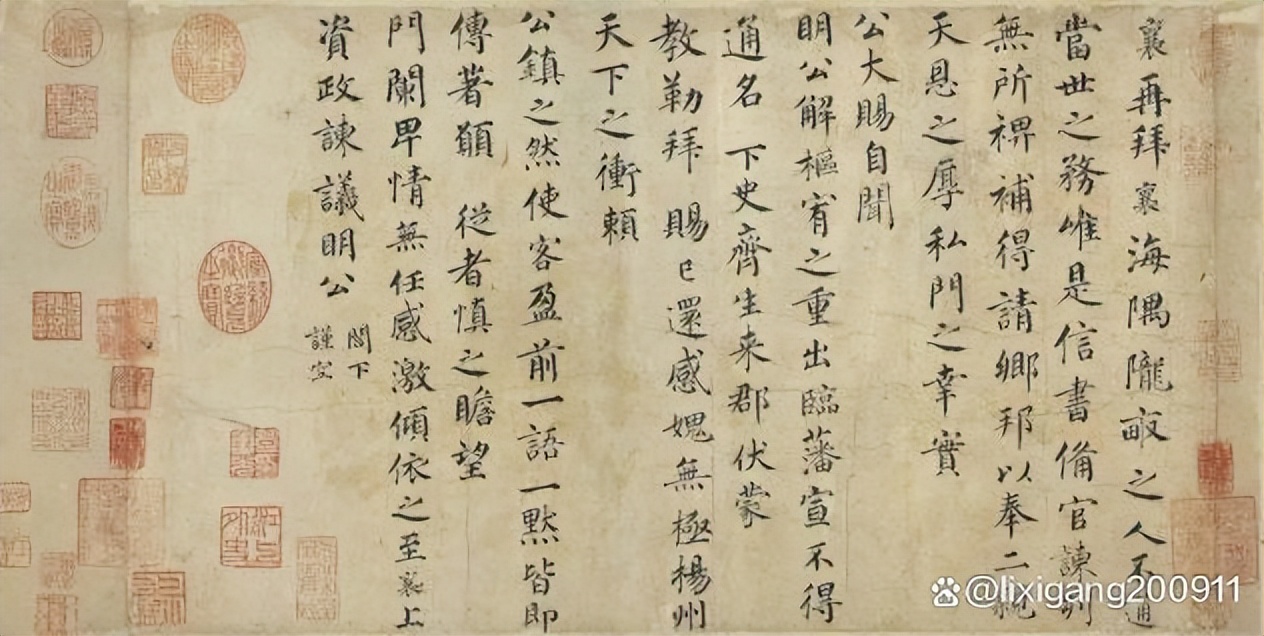 襄再拜襄海隅隴畝之人不通
當世之務唯是信書備官諫列
無所裨補得請鄉邦以奉二親
天恩之厚私門之幸實
公大賜自聞
明公解樞宥之重出臨藩宣不得
通名 下史齊生来郡伏蒙
教勒拜 賜已還感媿無極楊州
天下之衝頼
公鎮之然使客盈前一語一黙皆即
傳著願 從者慎之瞻望
門闌卑情無任感激傾依之至襄上
資政諫議明公
閤下
謹空
@lixigang200911